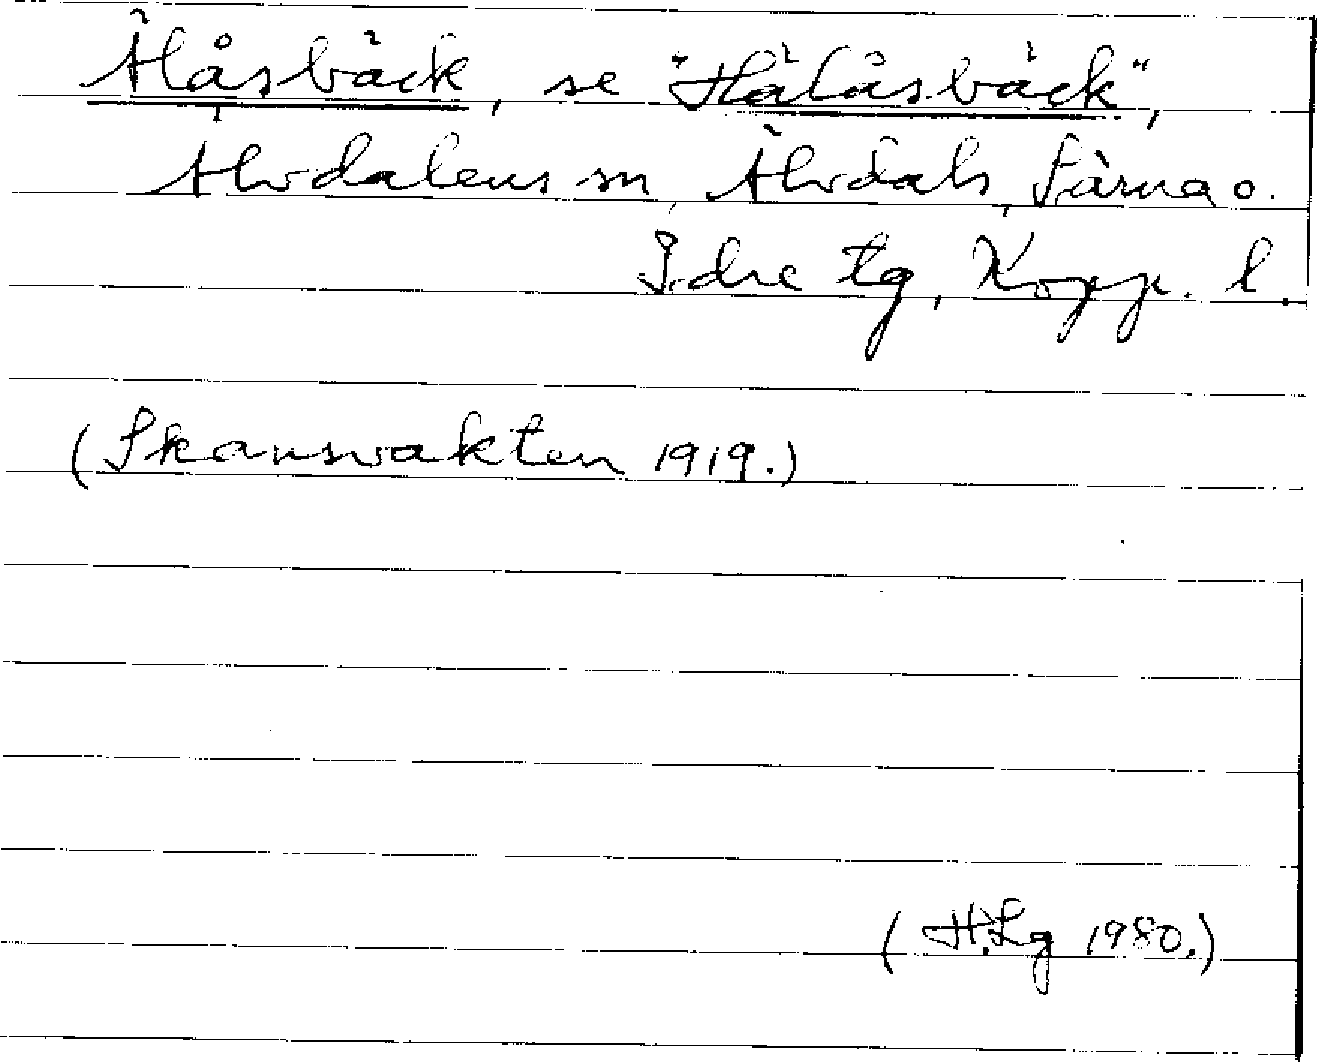 Älåsbäck, se "Hälåsbäck",
Älvdalens sn, Älvdals, Särna o.
Idre tg, Kopp. l.
(Skansvakten 1919.)
(H.Lg 1980.)